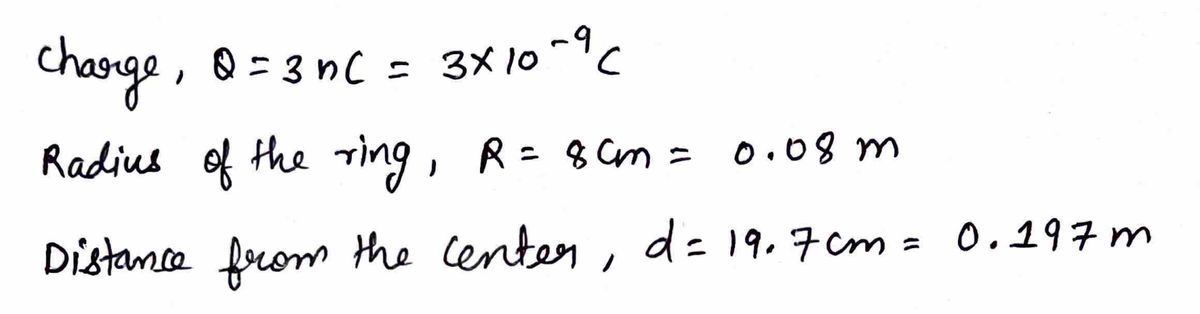 Charge, Q = 3 nC = 3×10⁻⁹C
Radius of the ring, R = 8 cm = 0.08 m
Distance from the center, d = 19.7 cm = 0.197 m